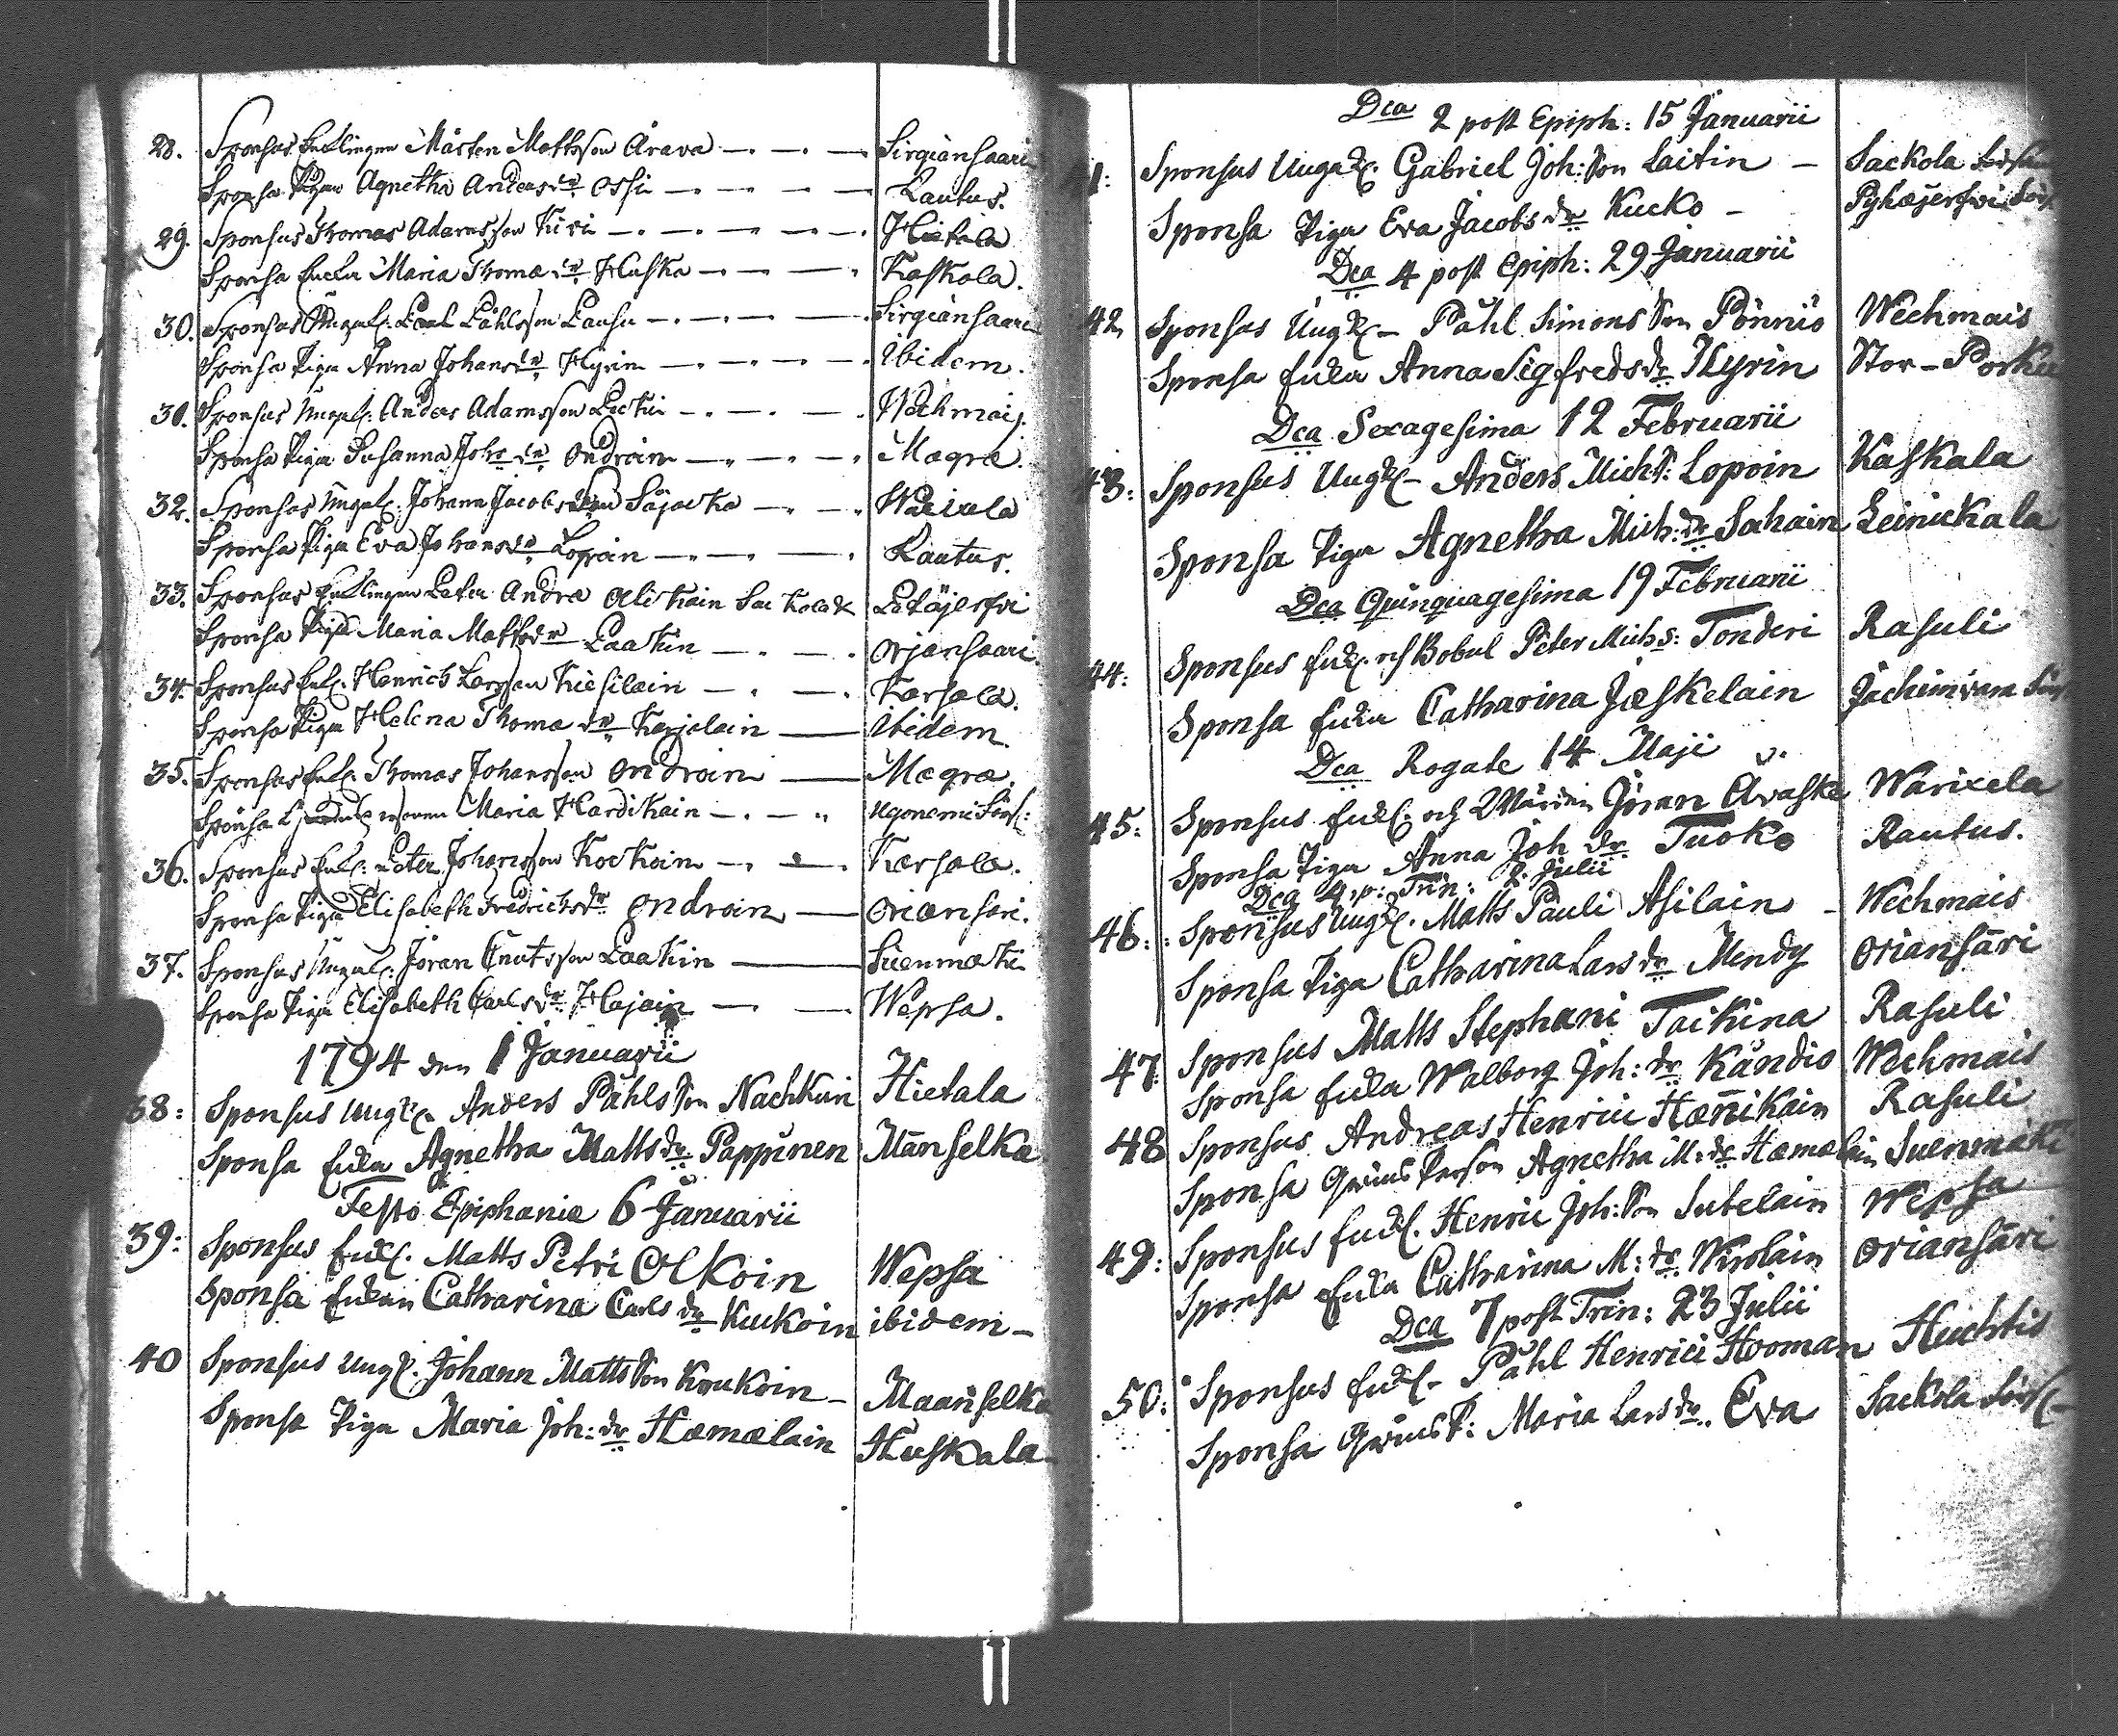 28. Sponsus Enklingen Mårten Mattsson Årava Sirgiänsaari
Sponsa Pigan Agnetha Andersdr Ossi Rautus.
29. Sponsus Thomas Adamsson Kiri Hietala
Sponsa Enkan Maria Thomædr Huska Kaskala.
30. Sponsus Ungk: Påhlsson Lausu Sirgiänsaari
Sponsa Piga Anna Johansdr Hyrin Ibidem.
30. Sponsus Ungk: Anders Adamsson Wechmais.
Sponsa Piga Susanna Johsdr Ondroin Mægræ.
32. Sponsus Ungk: Johann Jacobsson Säjackа
Sponsa Piga Eva Johansdr Lopoin Rautus.
33. Sponsus Enklingen Peter Andræ Petäjerfvi
Sponsa Piga Maria Mattsdr Laatin Orjansaari.
34. Sponsus Enkl. Henrich Larsson Kiesiläin Karsala.
Sponsa Piga Helena Thomædr Karjalain Ibidem.
35. Sponsus Enkl. Thomas Johansson Ondroin Mægræ.
Sponsa Maria Hardikain
36. Sponsus Enkl: Peter Johansson Karsala.
Sponsa Piga Elisabeth Fredrichsdr Ondroin Oriansari.
37. Sponsus Ungk: Jöran Cnutsson Laatin Suenmæki
Sponsa Piga Elisabeth Carlsdr Hajain Wepsa.
1794 den 1 Januarii
38: Sponsus Ungk. Anders Påhls Son Nachkuri Hietala
Sponsa Enka Agnetha Matts dr Pappinen Mänselkæ
Festo Epiphaniæ 6 Januarii
39: Sponsus Enkl. Matts Petri Olkoin Wepsa
Sponsa Enkan Catharina Carls dr Kuckoin ibidem
40 Sponsus Ungk. Johann Matts Son Koukoin Maanselka
Sponsa Piga Maria Joh: dr Hæmælain Huskala
Dca 2 post Epiph: 15 Januarii
41: Sponsus Ungk. Gabriel Joh: Son Laitin Sackola
Sponsa Piga Eva Jacobs dr Kucko Pyhæjerfvi
Dca 4 post Epiph: 29 Januarii
42 Sponsus Ungk Påhl Simons Son Pönniö Wechmais
Sponsa Enka Anna Sigfreds dr Hyrin Stor-Porku
Dca Sexagesima 12 Februarii
43: Sponsus Ungk Anders Mich S: Lopoin Kaskala
Sponsa Piga Agnetha Mich: dr Sahain Leinickala
Dca Quinquagesima 19 Februarii
44: Sponsus Enkl. och Bobul Peter Mich s: Tonderi Rasuli
Sponsa Enka Catharina Jæskelain
Dca Rogate 14 Maji
45: Sponsus Enkl. och Jöran Avaske Warixela
Sponsa Piga Anna Joh dr Tuoko Rautus.
Dca 4. p: Trin: 2 Julii
46: Sponsus Ungk. Matts Pauli Asilain Wechmais
Sponsa Piga Catharina Lars dr Mendy Oriansäri
47: Sponsus Matts Stephani Taikina Rasuli
Sponsa Enka Walborg Joh: dr Kändiö Wechmais
48 Sponsus Andreas Henrici Hæn̄ikain Rasuli
Sponsa Qwins Person Agnetha M: dr Hæmælain Suenmäki
49: Sponsus Enkl. Henric Joh: Son Sutelain Wepsa
Sponsa Enka Catharina M: dr Wirolain Oriansäri
Dca 7 post Trin: 23 Julii
50: Sponsus Enkl Påhl Henrici Hooman Huchtis
Sponsa Qwins P: Maria Lars dr Eva Sackola